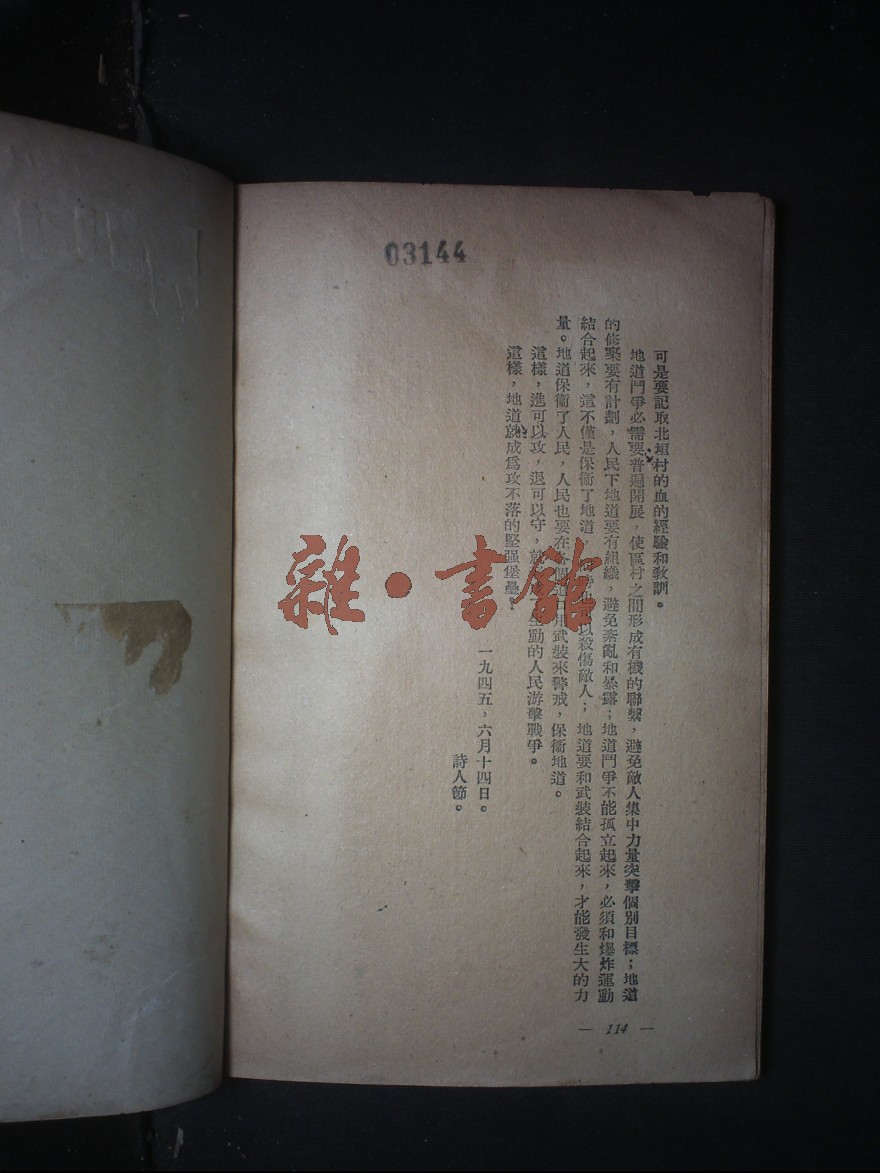 03144
可是要記取北垣村的血的經驗和教訓。
地道鬥爭必需要普遍開展，使區村之間形成有機的聯繫，避免敵人集中力量突擊個別目標；地道
的修築要有計劃，人民下地道要有組織，避免紊亂和暴露；地道鬥爭不能孤立起來，必須和爆炸運動
結合起來，這不僅是保衛了地道，以殺傷敵人；地道要和武裝結合起來，才能發生大的力
量。地道保衛了人民，人民也要在各個道口用武裝來警戒，保衛地道。
這樣，進可以攻，退可以守，就生動的人民游擊戰爭。
這樣，地道就成爲攻不落的堅强堡壘！
一九四五，六月十四日。
詩人節。
— 114 —
雜·書館